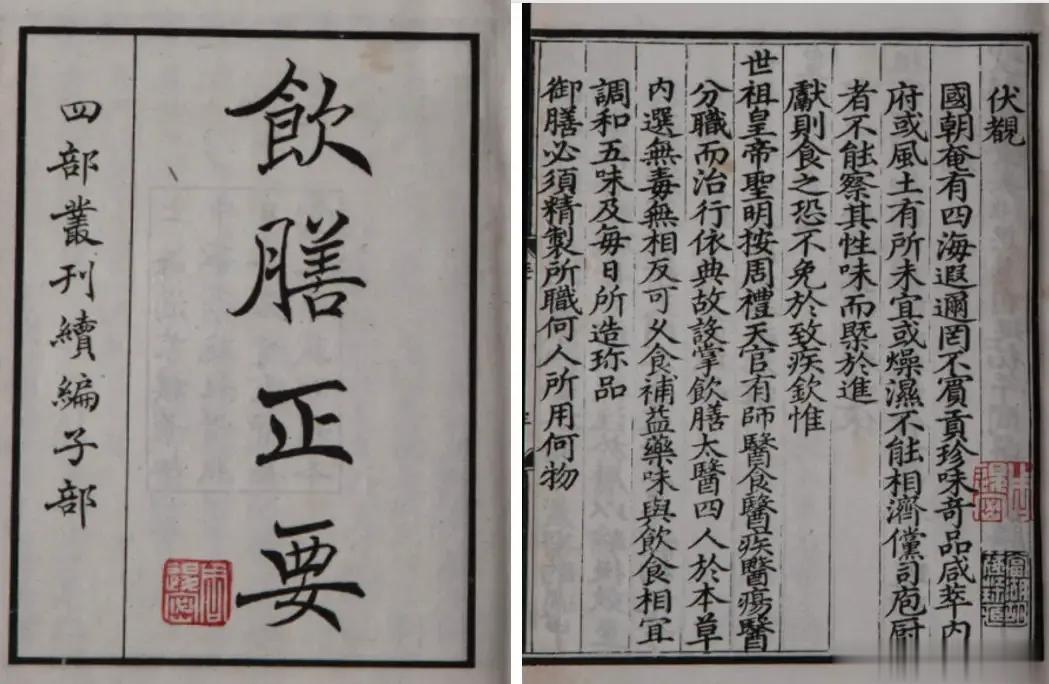 飲膳正要
四部叢刊續編子部
伏覩
國朝奄有四海遐邇罔不賔貢珍味奇品咸萃内
府或風土有所未宜或燥濕不能相濟儻司庖厨
者不能察其性味而槩於進
獻則食之恐不免於致疾欽惟
世祖皇帝聖明按周禮天官有師醫食醫疾醫瘍醫
分職而治行依典故設掌飲膳太醫四人於本草
内選無毒無相反可久食補益藥味與飲食相宜
調和五味及每日所造珎品
御膳必須精製所職何人所用何物